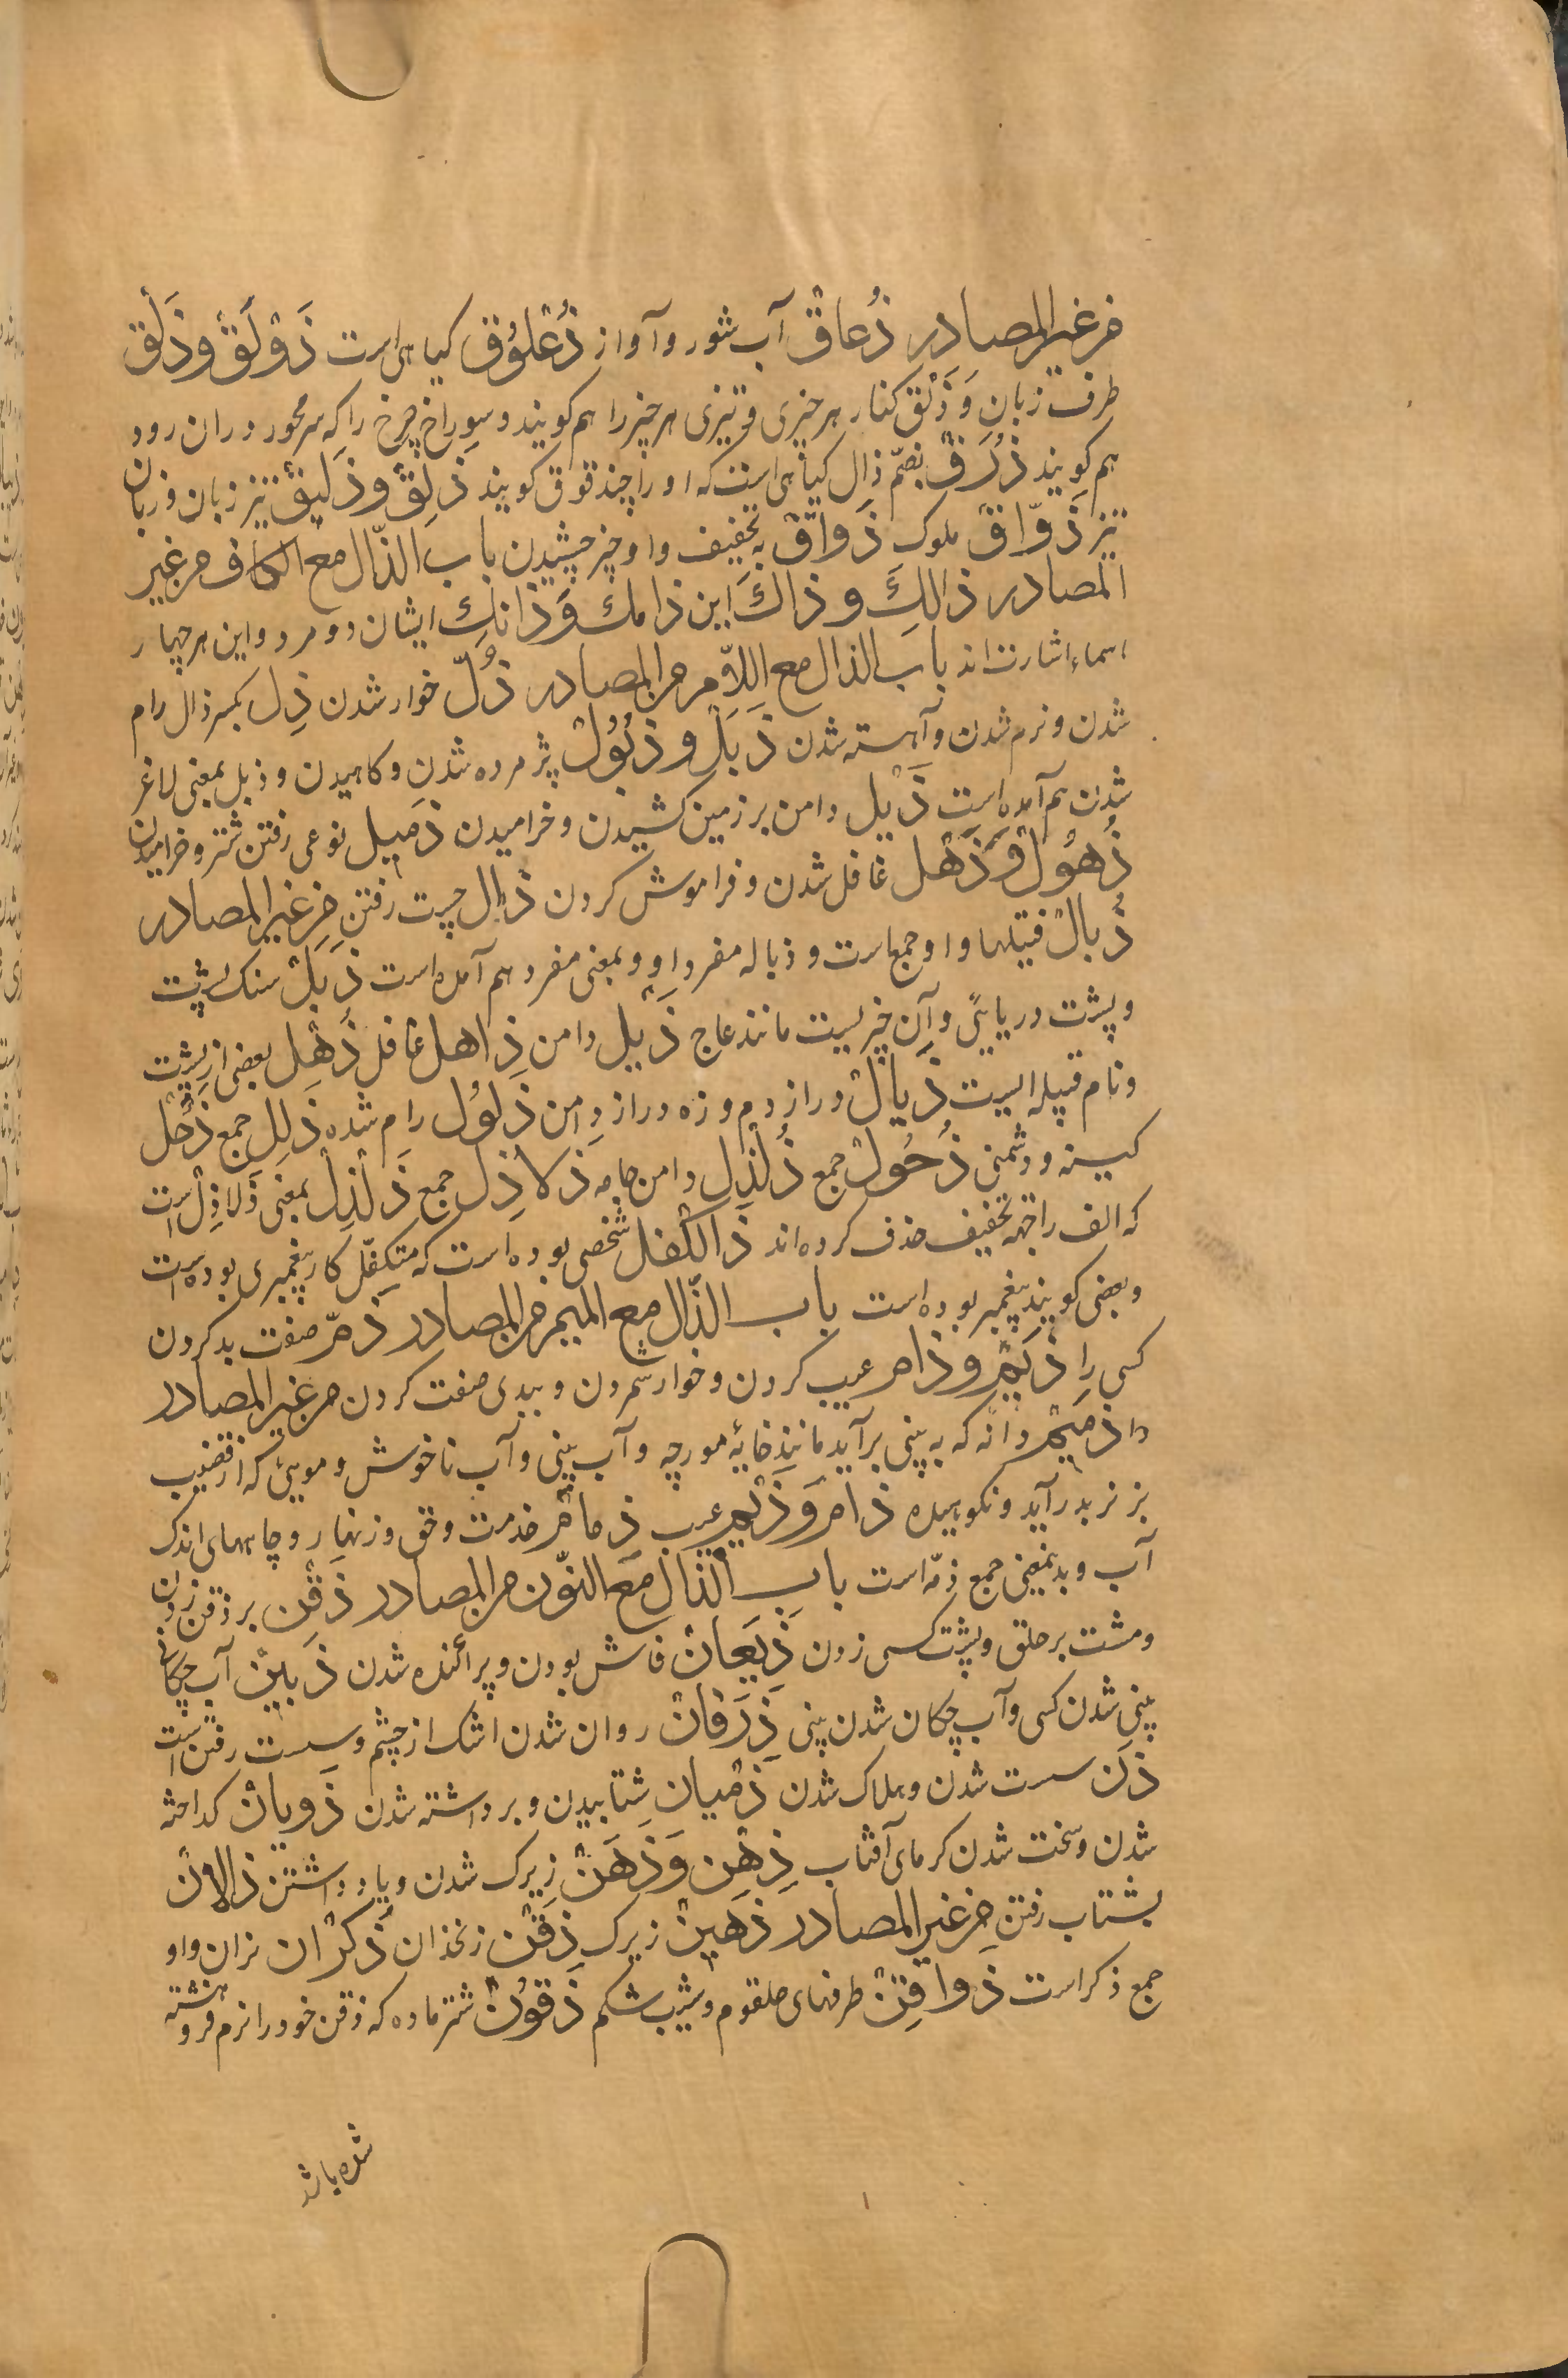 من غیر المصادر ذُعاقْ آب شور و آواز ذُعْلوُق کیاهی است ذَوْلَقْ وذَلْق
طرف زبان وَذَلْق کنار هر چیزی و تیزی هر چیز را هم کویند و سوراخ چرخ را که سر محور در ان رود
هم کویند ذُرَقْ بضمّ ذال کیاهی است که او را حند قوق کویند ذَلِقْ وذَلیقْ تیز زبان و زبان
تیز ذَوّاق ملوک ذَواقْ به تخفیف واو چیز چشیدن باب الذّال مع الکاف من غیر
المصادر ذالِکَ و ذاکَ این ذامك وَذانِكَ ایشان دو مرد و این هر چهار
اسماء اشارت اند باب الذال مع اللاّم من المصادر ذُلّ خوار شدن ذِل بکسر ذال رام
شدن و نرم شدن و آهسته شدن ذَبَلْ و ذُبُوُلْ پژمرده شدن و کاهیدن و ذبل بمعنی لاغر
شدن هم آمده است ذَیْل دامن بر زمین کشیدن و خرامیدن ذمَیل نوعی رفتن شتر و خرامیدن
ذُهوُلْ وَذَهْل غافل شدن و فراموش کردن ذالْ چست رفتن من غیر المصادر
ذُبالْ فتیلها و او جمع است و ذباله مفرد او و بمعنی مفرد هم آمده است ذَبَلْ سنك پشت
و پشت دریایی و آن چیزیست مانند عاج ذَیْل دامن ذاهل غافل ذَهْل بعضی از پشت
و نام قبیله ایست ذَیالْ دراز دم و زه دراز دامن ذَلوُل رام شده ذُلِل جمع ذَحْل
کینه و دشمنی ذُحُولْ جمع ذُلْذِل دامن جامه ذَلاذِل جمع ذَلَذِلْ بمعنی ذَلاذِلْ است
که الف را جهة تخفیف حذف کرده اند ذَالکْفل شخصی بوده است که متکفّل کار پیغمبری بوده است
و بعضی کویند پیغمبر بوده است باب الذّال مع المیم من المصادر ذمّ صفت بد کردن
کسی را ذَیْم و ذام عیب کردن و خوار شمردن و ببدی صفت کردن من غیر المصادر
ذمیَم دانه که به بینی برآید مانند خایۀ مورچه و آب بینی و آب ناخوش و مویی که از قضیب
بز نر بدر آید و نکوهیده ذام وَذَیْم عیب ذِمامْ خدمت و حق و زنهار و چاههای اندک
آب و بدینمعنی جمع ذمّه است باب الذّال مع النّون من المصادر ذَقْن بر ذقن زدن
و مشت بر حلق و پشت کسی زدن ذَیَعانْ فاش بودن و پراکنده شدن ذَنینْ آب چکان
بینی شدن کسی و آب چکان شدن بینی ذَرَفانْ روان شدن اشک از چشم و سست رفتن است
ذَن سست شدن و هلاک شدن ذَمَیان شتابیدن و برداشته شدن ذَوبانْ کداخته
شدن و سخت شدن کرمای آفتاب ذِهْن وَذَهَنْ زیرک شدن و یاد داشتن ذالانْ
بشتاب رفتن من غیر المصادر ذَهینْ زیرک ذَقَنْ زنخدان ذُکْران نران و او
جمع ذکر است ذَواقِنْ طرفهای حلقوم و شیب شکم ذَقوُنْ شتر ماده که ذقن خود را نرم فروهشته
شده باشد